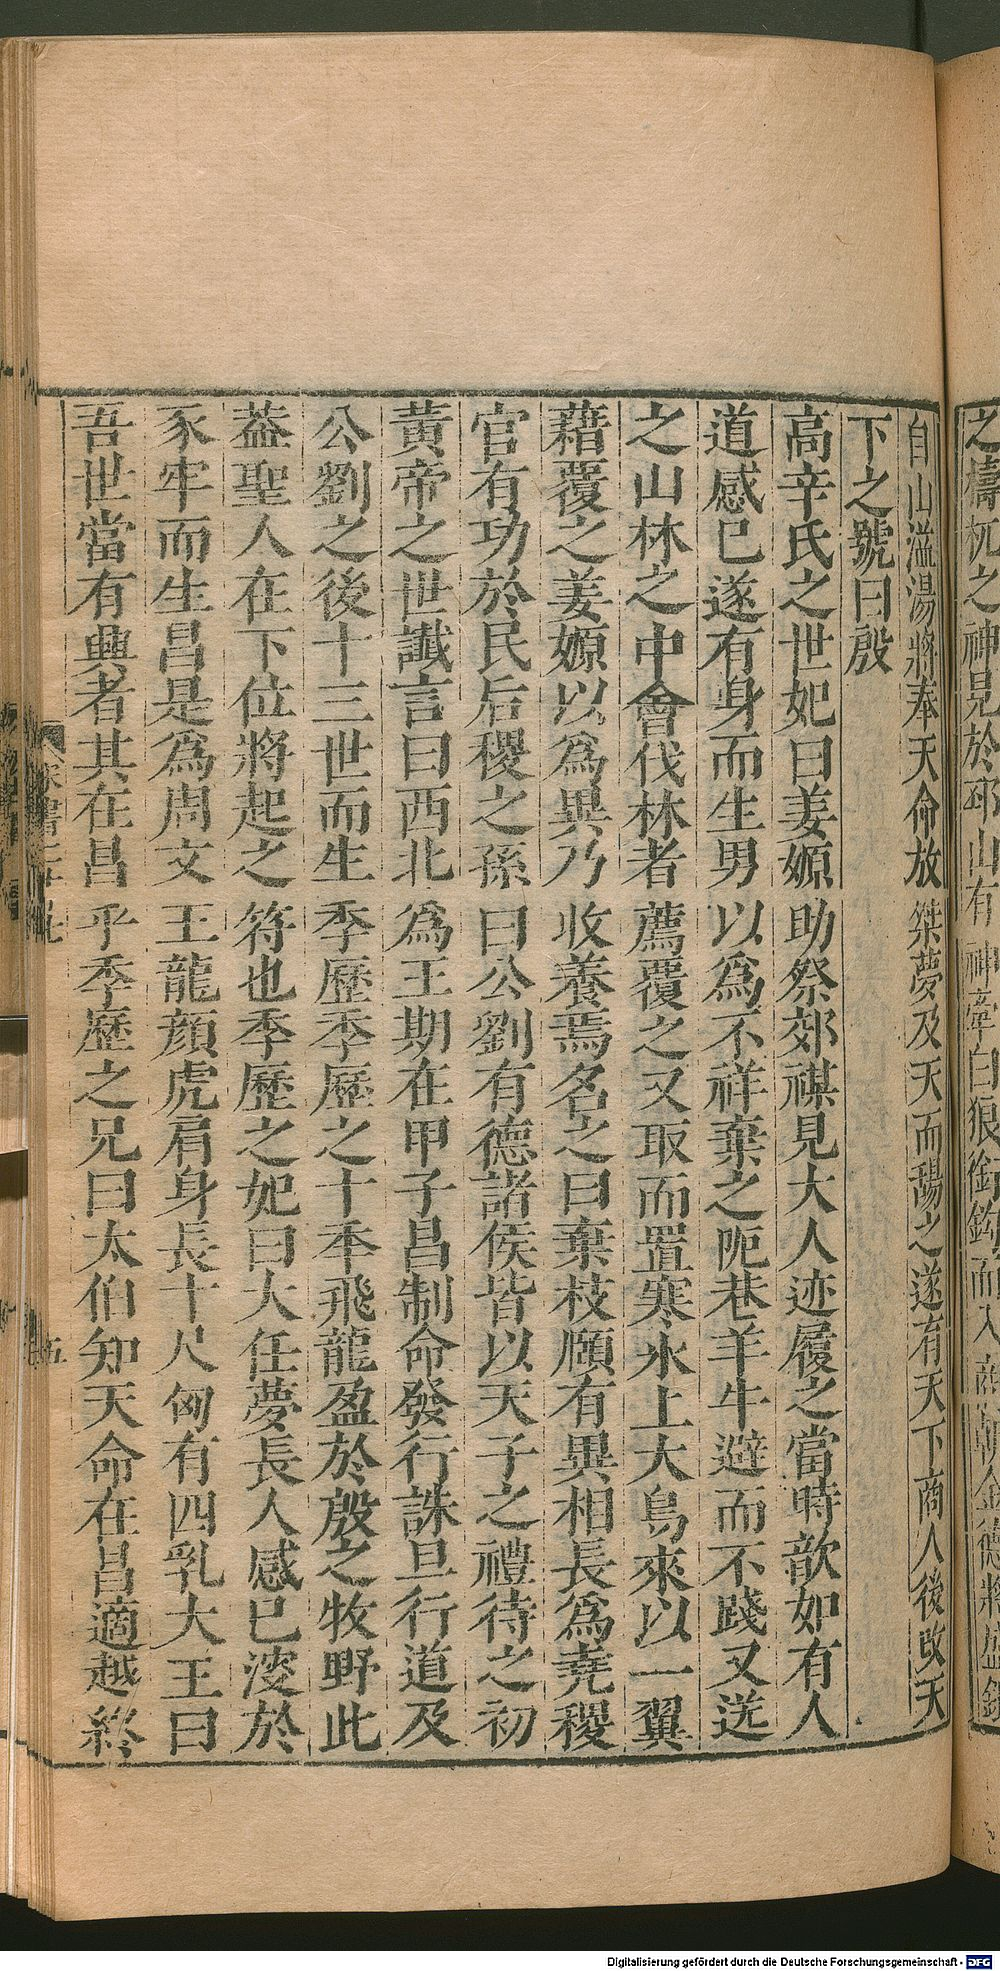 之檮杌之神見於邳山有神牽白狼銜鉤而入商朝金德將盛銀
自山溢湯將奉天命放桀夢及天而䑛之遂有天下商人後改天
下之號曰殷
高辛氏之世妃曰姜嫄助祭郊禖見大人迹履之當時歆如有人
道感已遂有身而生男以為不祥棄之阨巷羊牛避而不踐又送
之山林之中會伐林者薦覆之又取而置寒氷上大鳥來以一翼
藉覆之姜嫄以為異乃收養焉名之曰棄枝頤有異相長為堯稷
官有功於民后稷之孫曰公劉有德諸侯皆以天子之禮待之初
黃帝之世讖言曰西北為王期在甲子昌制命發行誅旦行道及
公劉之後十三世而生季歷季歷之十年飛龍盈於殷之牧野此
葢聖人在下位將起之符也季歷之妃曰大任夢長人感已溲於
豕牢而生昌是為周文王龍顏虎肩身長十尺匈有四乳大王曰
吾世當有興者其在昌乎季歷之兄曰太伯知天命在昌適越終
宋書二十七
五
Digitalisierung gefördert durch die Deutsche Forschungsgemeinschaft - DFG